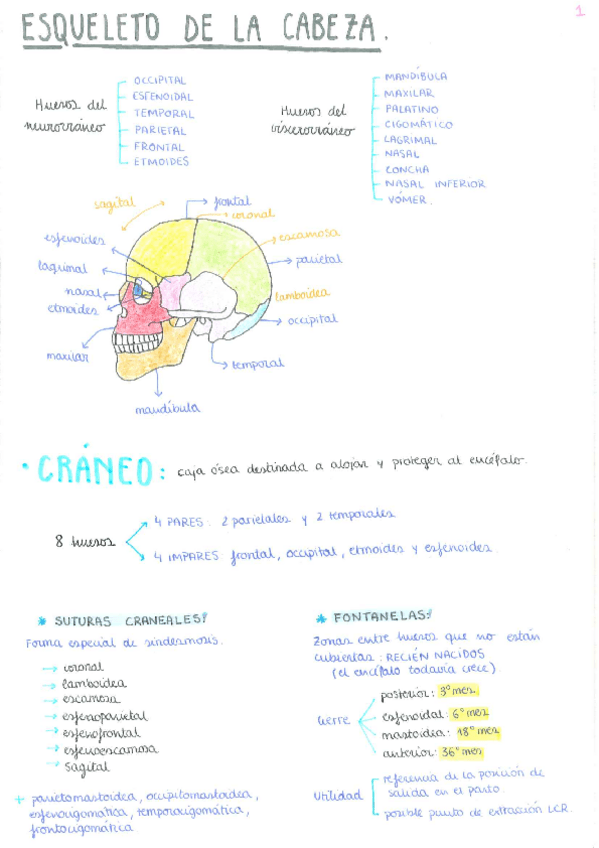 1
ESQUELETO DE LA CABEZA.
Huesos del
neurocráneo
OCCIPITAL
ESFENOIDAL
TEMPORAL
PARIETAL
FRONTAL
ETMOIDES
Huesos del
viscerocráneo
MANDÍBULA
MAXILAR
PALATINO
CIGOMÁTICO
LAGRIMAL
NASAL
CONCHA
NASAL INFERIOR
VÓMER.
sagital
frontal
coronal
esfenoides
escamosa
lagrimal
parietal
nasal
lamboidea
etmoides
occipital
maxilar
temporal
mandíbula
• CRÁNEO: caja ósea destinada a alojar y proteger al encéfalo.
8 huesos
4 PARES: 2 parietales y 2 temporales
4 IMPARES frontal, occipital, etmoides y esfenoides.
* SUTURAS CRANEALES:
Forma especial de sindesmosis.
→ coronal
→ lamboidea
→ escamosa
→ esfenoparietal
→ esfenofrontal
→ esfenoescamosa
→ sagital
+ parietomastoidea, occipitomastoidea,
esfenocigomática, temporocigomática,
frontocigomática
* FONTANELAS:
Zonas entre huesos que no están
cubiertas: RECIÉN NACIDOS
(el encéfalo todavía crece).
Cierre
posterior: 3º mes.
esfenoidal: 6º mes
mastoidea: 18º mes
anterior: 36º mes
Utilidad
referencia de la posición de
salida en el parto.
posible punto de extracción LCR.